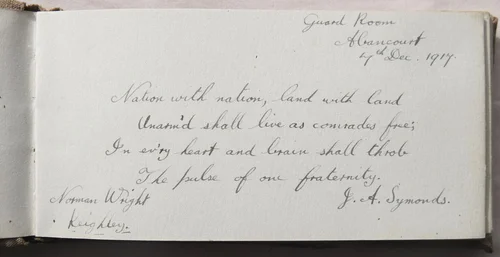 Guard Room
Abancourt
7th Dec. 1917.
Nation with nation, land with land
Unarm'd shall live as comrades free;
In ev'ry heart and brain shall throb
The pulse of one fraternity.
Norman Wright
J. A. Symonds.
Keighley.